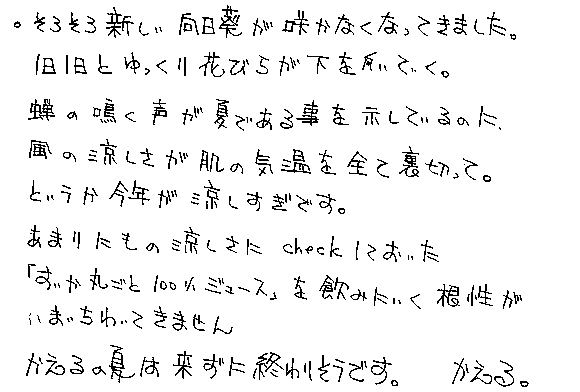 。そろそろ新しい向日葵が咲かなくなってきました。
1日1日とゆっくり花びらが下を向いていく。
蝉の鳴く声が夏である事を示しているのに、
風の涼しさが肌の気温を全て裏切って。
というか今年が涼しすぎです。
あまりにもの涼しさに checkしておいた
「すいか丸ごと100%ジュース」を飲みにいく根性が
いまいちわいてきません
かえるの夏は来ずに終わりそうです。 かえる。